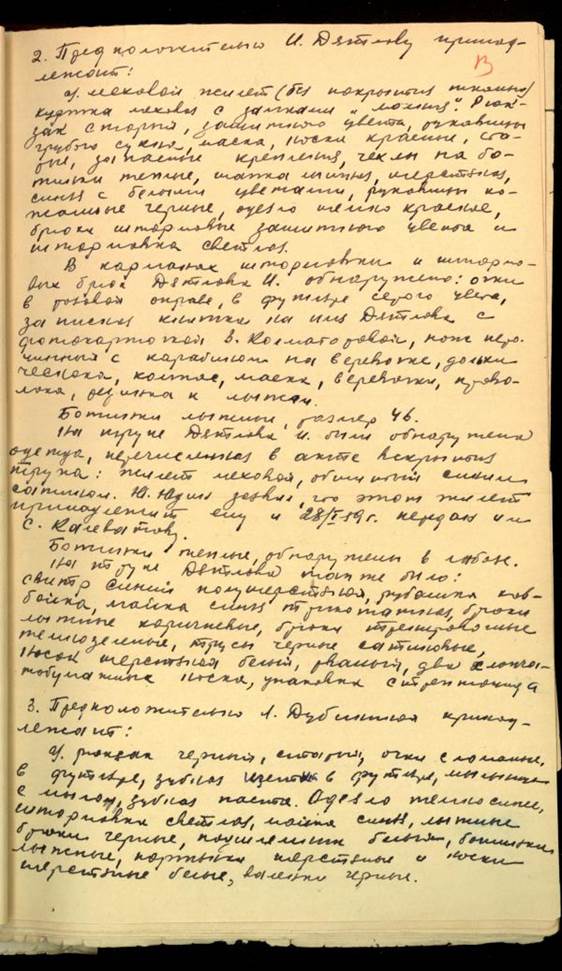 2. Предположительно И. Дятлову принад-
лежит:
У. меховой жилет (без покрытия тканью)
куртка меховая с замками "молния". Рюк-
зак старый, защитного цвета, рукавицы
грубого сукна, маска, носки красные, ста-
рые, запасные крепления, чехлы на бо-
тинки теплые, шапка лыжная, шерстяная,
синяя с белыми цветами, рукавицы ко-
жаные черные, одеяло темно красное,
брюки штормовые защитного цвета и
штормовка светлая.
В карманах штормовки и штормо-
вых брюк Дятлова И. обнаружено: очки
в роговой оправе, в футляре серого цвета,
записная книжка на имя Дятлова с
фотокарточкой З. Колмогоровой, нож перо-
чинный с карабином на веревочке, дольки
чеснока, компас, маска, веревочки, прово-
лока, резинка к лыжам.
Ботинки лыжные, размер 46.
На трупе Дятлова И. были обнаружена
одежда, перечисленная в акте вскрытия
трупа: жилет меховой, обшитый синим
сатином. Ю. Юдин заявил, что этот жилет
принадлежит ему и 28/I-59г. передан им
С. Колеватову.
Ботинки теплые, обнаружены в лабазе.
На трупе Дятлова также было:
свитр синий полушерстяной, рубашка ков-
бойка, майка синяя трикотажная, брюки
лыжные коричневые, брюки тренировочные
темнозеленые, трусы черные сатиновые,
носок шерстяной белый, рваный, два хлопча-
тобумажные носка, упаковка стрептоцида
3. Предположительно Л. Дубининой принад-
лежит:
У. рюкзак черный, старый, очки сломанные,
в футляре, зубная щетка в футляре, мыльница
с мылом, зубная паста. Одеяло темносинее,
штормовка светлая, майка синяя, лыжные
брюки черные, подшлемник белый, ботинки
лыжные, портянки шерстяные и носки
шерстяные белые, валенки черные.